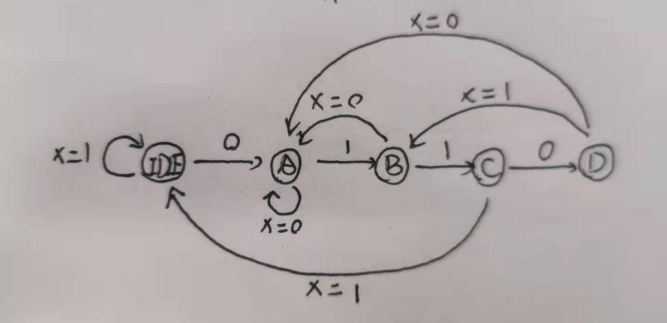 x=0
x=0
x=1
x=1
IDE
0
A
1
B
1
C
0
D
x=0
x=1